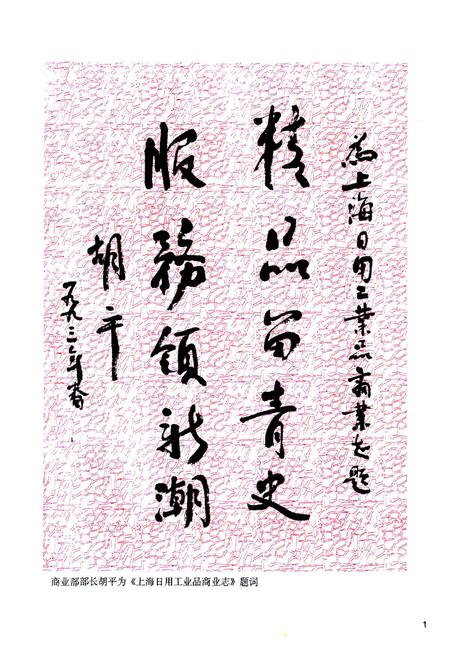 為上海日用工業品商業志題
精品留青史
服務領新潮
胡平
一九九三年春
商业部部长胡平为《上海日用工业品商业志》题词
1